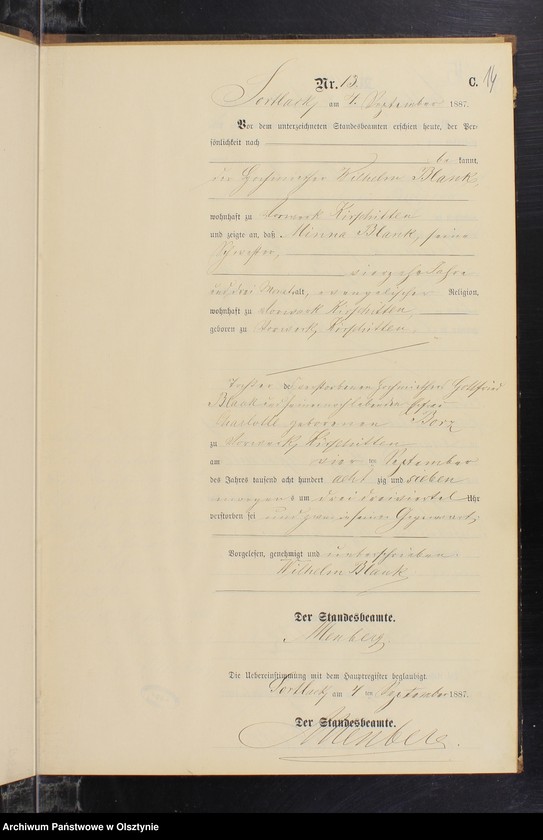 Nr. 13. C. 14
Sortlack, am 4. September 1887.
Vor dem unterzeichneten Standesbeamten erschien heute, der Per-
sönlichkeit nach
be kannt,
der Wilhelm Blank,
wohnhaft zu Vorwerk Kirschitten
und zeigte an, daß Minna Blank, seine
Schwester,
vierzehn Jahre
und drei Monat alt, evangelischer Religion,
wohnhaft zu Vorwerk Kirschitten,
geboren zu Vorwerk Kirschitten
Tochter des verstorbenen Gottfried
Blank und
Charlotte geborenen
zu Vorwerk Kirschitten
am vier ten September
des Jahres tausend acht hundert acht zig und sieben
morgens um drei dreiviertel Uhr
verstorben sei und zwar in seiner Gegenwart
Vorgelesen, genehmigt und unterschrieben
Wilhelm Blank
Der Standesbeamte.
Allenberg.
Die Uebereinstimmung mit dem Hauptregister beglaubigt.
Sortlack, am 4 ten September 1887.
Der Standesbeamte.
Allenberg.
Archiwum Państwowe w Olsztynie